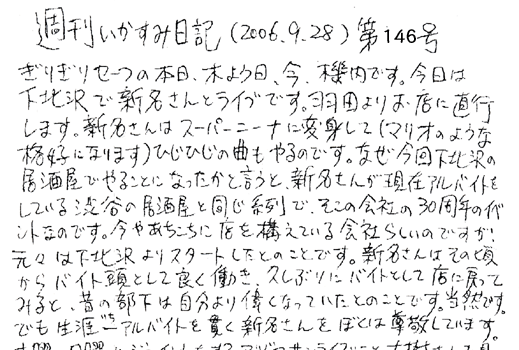 週刊いかすみ日記 (2006.9.28) 第146号
ぎりぎりセーフの本日、木よう日、今、機内です。今日は
下北沢で新名さんとライブです。羽田よりお店に直行
します。新名さんはスーパーニーナに変身して(マリオのような
格好になります)ひじひじの曲もやるのです。なぜ今回下北沢の
居酒屋でやることになったかと言うと、新名さんが現在アルバイトを
している渋谷の居酒屋と同じ系列で、そこの会社の30周年のイベ
ントなのです。今やあちこちに店を構えている会社らしいのですが、
元々は下北沢よりスタートしたとのことです。新名さんはその頃
からバイト頭として良く働き、久しぶりにバイトとして店に戻って
みると、昔の部下は自分より偉くなっていたとのことです。当然です。
でも生涯一アルバイトを貫く新名さんをぼくは尊敬しています。